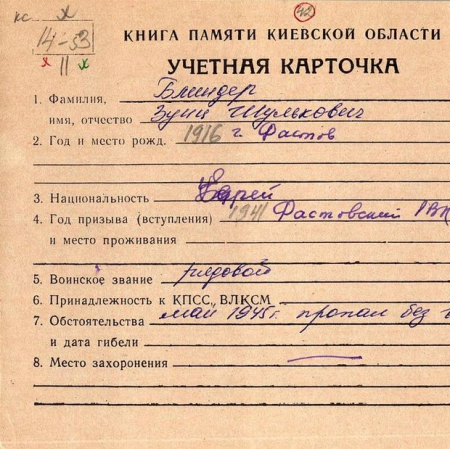 кс. х
42
14-53
х 11 х
КНИГА ПАМЯТИ КИЕВСКОЙ ОБЛАСТИ
УЧЕТНАЯ КАРТОЧКА
1. Фамилия, Блиндер
имя, отчество Зуня Шулькович
2. Год и место рожд. 1916 г. Фастов
3. Национальность Еврей
4. Год призыва (вступления) 1941 Фастовский РВК
и место проживания
5. Воинское звание рядовой
6. Принадлежность к КПСС, ВЛКСМ
7. Обстоятельства май 1945г. пропал без
и дата гибели
8. Место захоронения